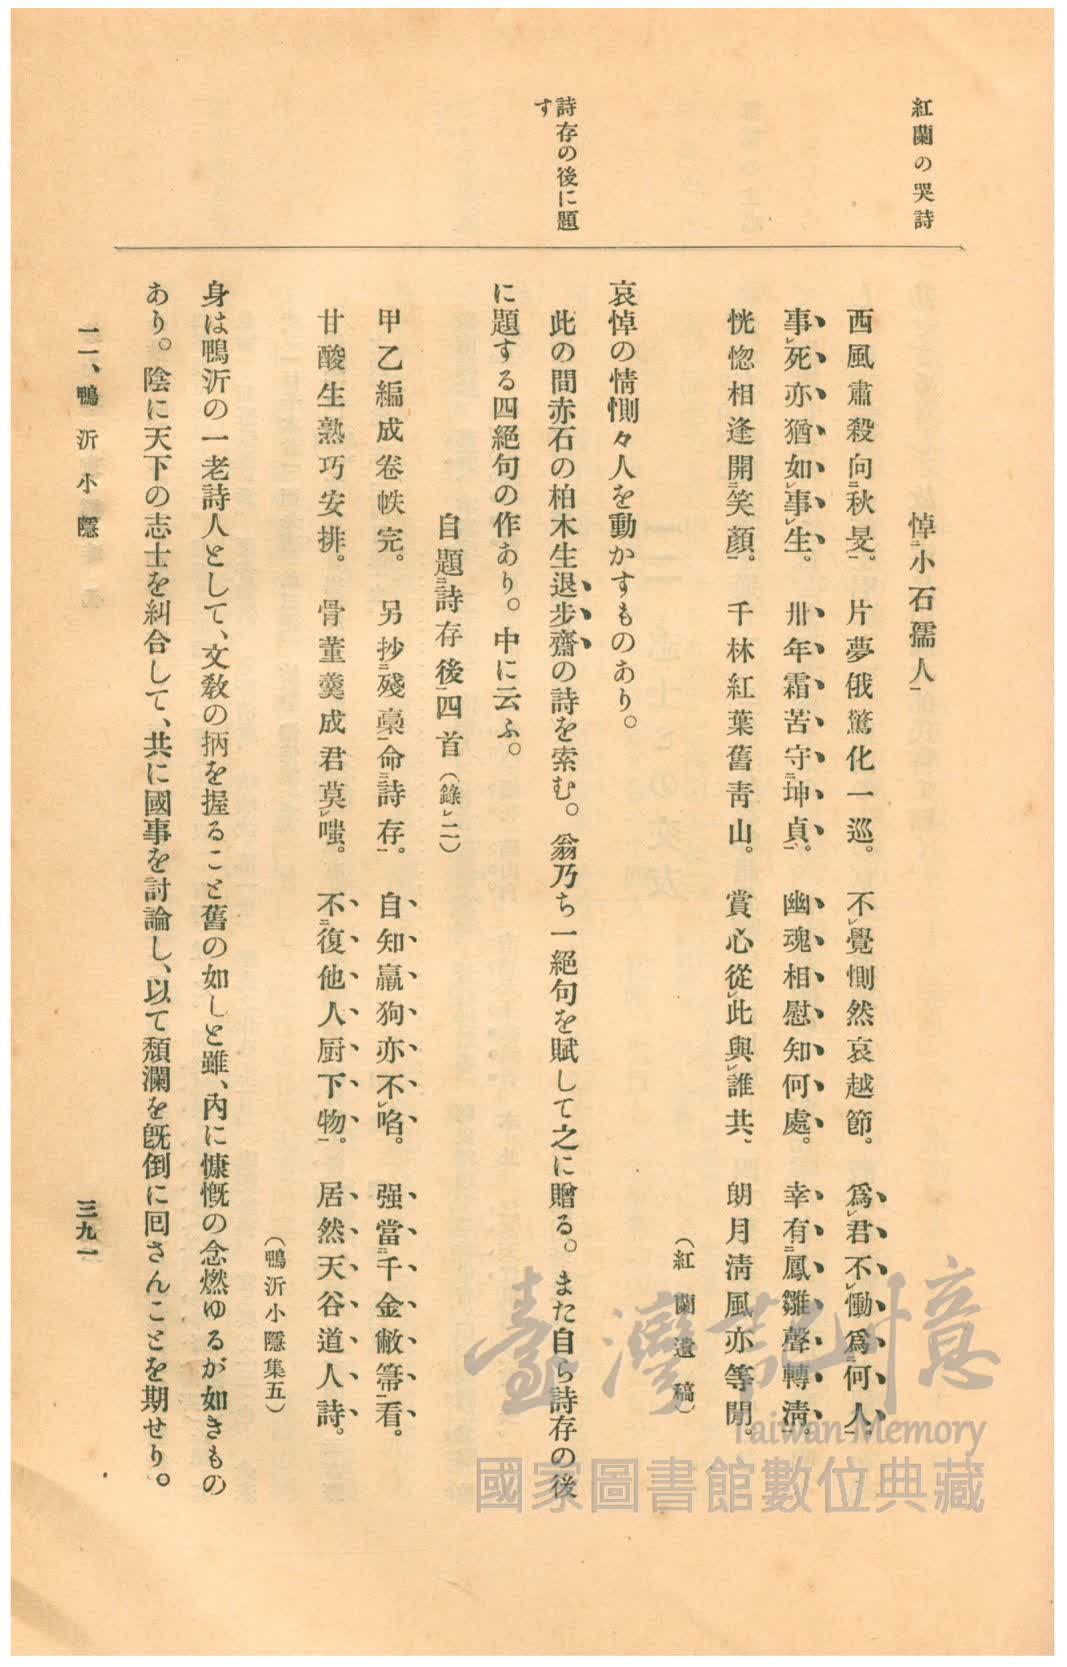 紅蘭の哭詩
詩存の後に題
す
悼二小石孺人一
西風肅殺向二秋旻一。片夢俄驚化一巡。不レ覺惻然哀越節。爲レ君不レ慟爲二何人一。
事レ死亦猶如レ事レ生。卅年霜苦守二坤貞一。幽魂相慰知何處。幸有二鳳雛聲轉淸一。
恍惚相逢開二笑顏一。千林紅葉舊靑山。賞心從レ此與レ誰共、朗月淸風亦等閒。
（紅蘭遺稿）
哀悼の情惻々人を動かすものあり。
此の間赤石の柏木生退步齋の詩を索む。翁乃ち一絕句を賦して之に贈る。また自ら詩存の後
に題する四絕句の作あり。中に云ふ。
自題二詩存後一四首（錄レ二）
甲乙編成卷帙完。另抄二殘藁一命二詩存一。自知羸狗亦不レ啗。强當二千金敝箒一看。
甘酸生熟巧安排。骨董羹成君莫レ嗤。不二復他人厨下物一。居然天谷道人詩。
（鴨沂小隱集五）
身は鴨沂の一老詩人として、文敎の柄を握ること舊の如しと雖、內に慷慨の念燃ゆるが如きもの
あり。陰に天下の志士を糾合して、共に國事を討論し、以て頹瀾を旣倒に囘さんことを期せり。
一一、鴨沂小隱
三九一
臺灣記憶
Taiwan Memory
國家圖書館數位典藏